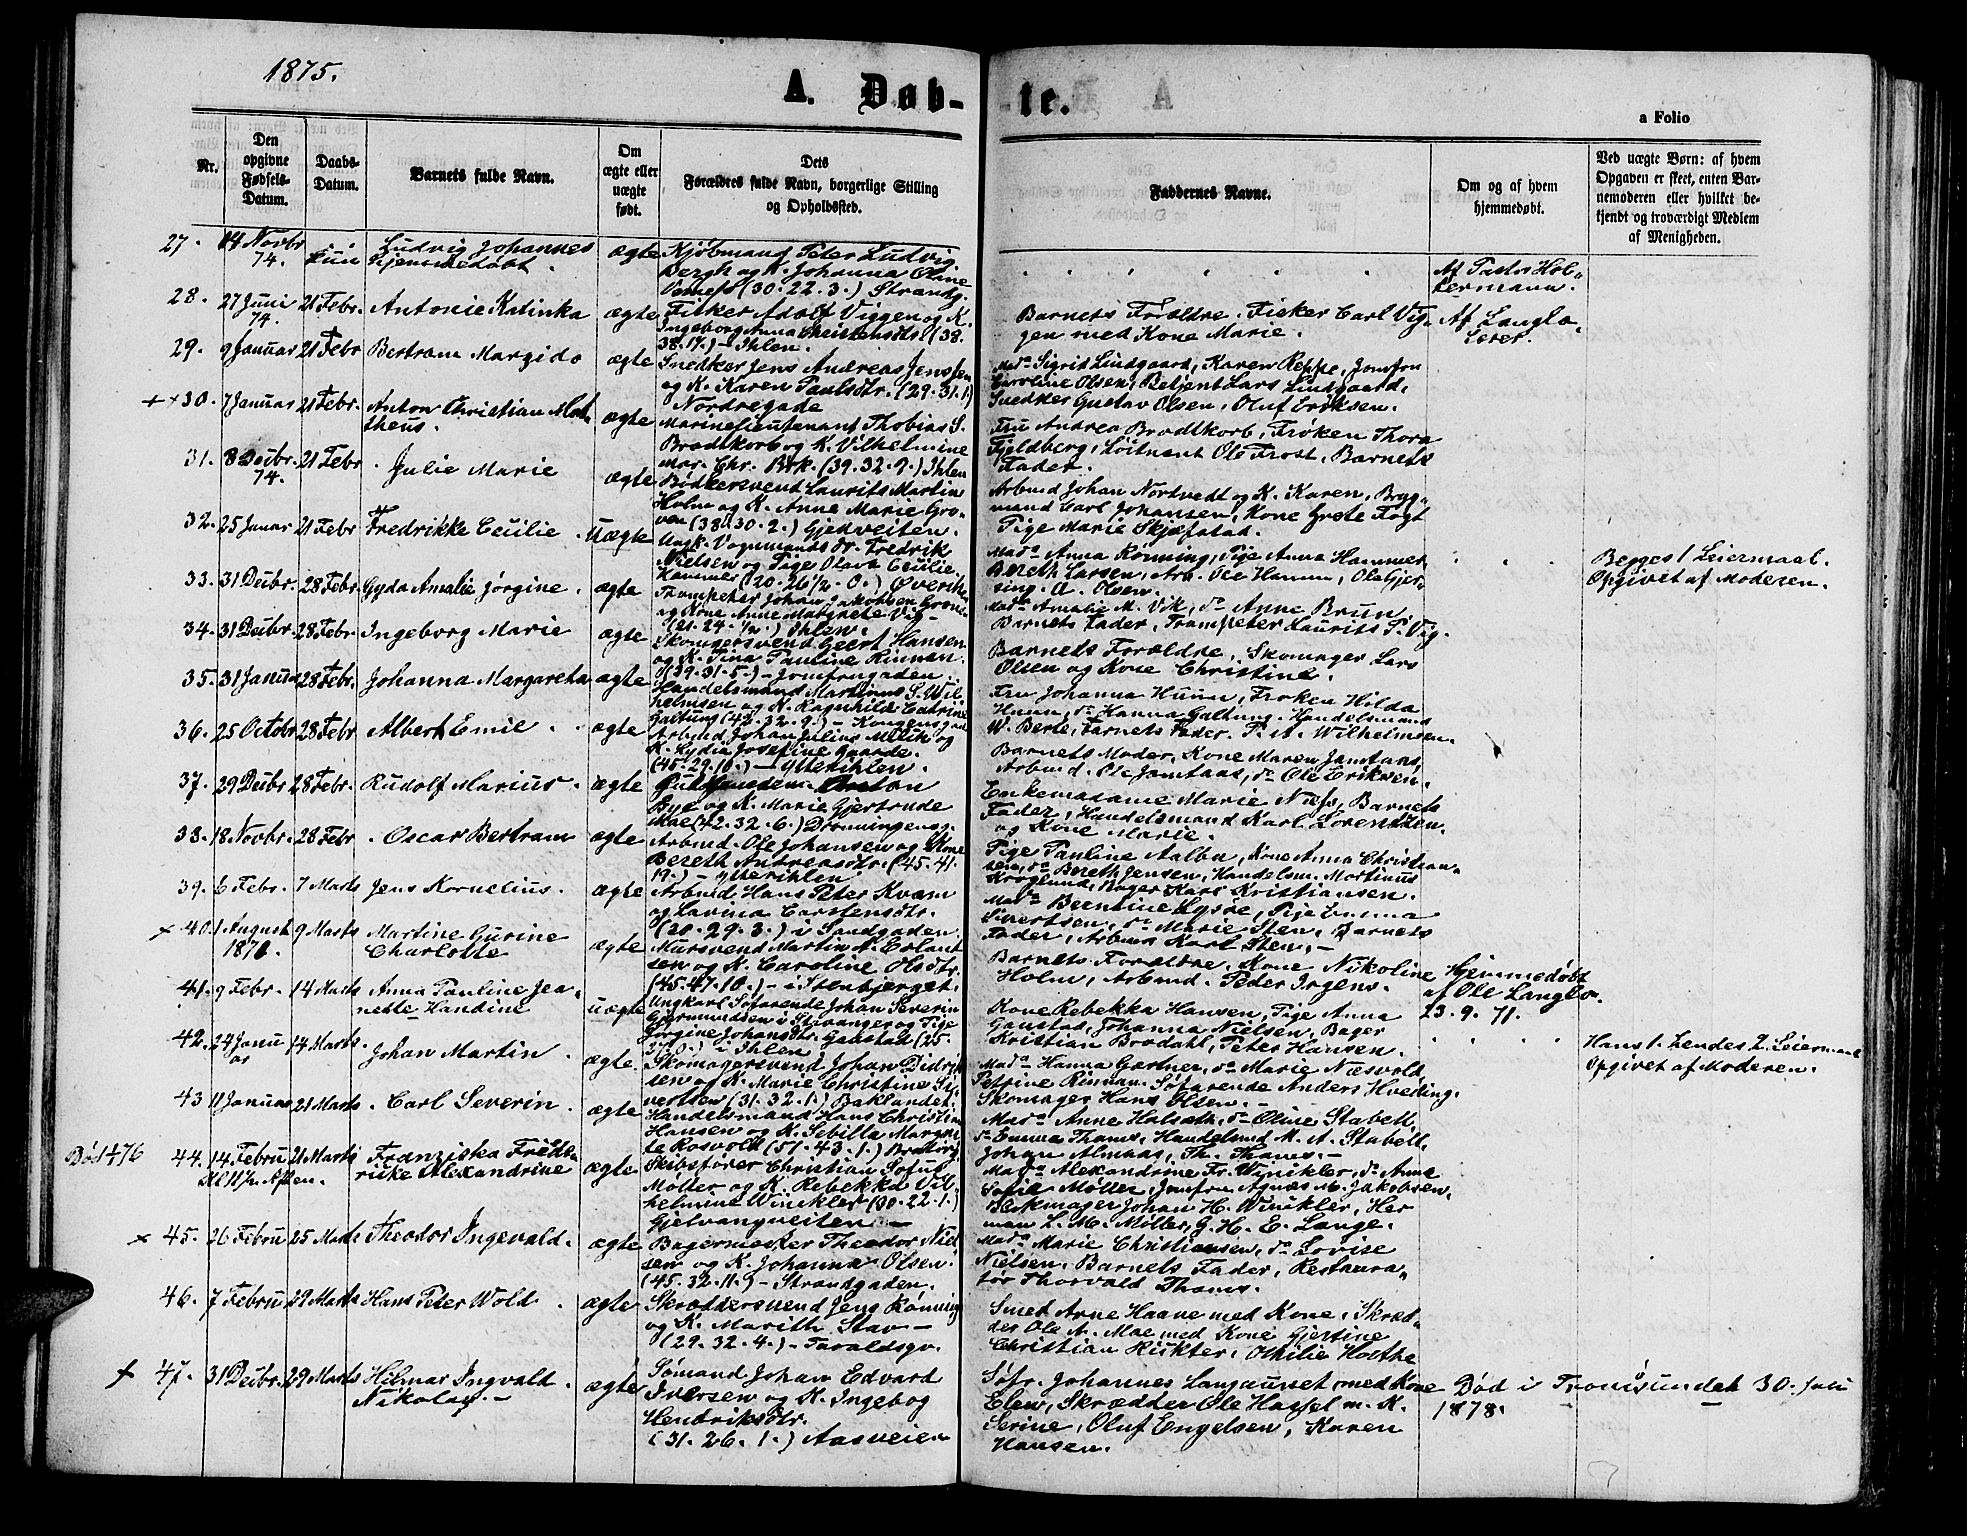 1875.
A. Døb-
te.
a Folio
Nr.
Den opgivne Fødsels-Datum.
Daabs-Datum.
Barnets fulde Navn.
Om ægte eller uægte født.
Dets Forældres fulde Navn, borgerlige Stilling og Opholdssted.
Faddernes Navne.
Om og af hvem hjemmedøbt.
Ved uægte Børn: af hvem Opgaven er skeet, enten Barnemoderen eller hvilket bekjendt og troværdigt Medlem af Menigheden.
27. 14 Novbr 74.
Ludvig Johannes
Hjemmedøbt.
ægte
Kjøbmand Peter Ludvig
Bergh og K. Johanna Oline
(30.22.3.) Strandg.
Af Pastor Hol-
termann.
28. 27 Juni 74. 21 Febr. Antonie Katinka
ægte
Fisker Adolf Viggen og K.
Ingeborg Anna Christensdtr (38.
38.17.) - Ihlen.
Barnets Forældre. Fisker Carl Vig-
gen med Kone Marie.
Af Langlo.
29. 9 Januar 21 Febr Bertram Margido
ægte
Snedker Jens Andreas Jensen
og K. Karen Paulsdtr. (29.31.1)
Nordregade
Mad. Sigrid Lindgaard, Karen Reppe, Jomfru
Caroline Olsen, Betjent Lars Lindgaard,
Snedker Gustav Olsen, Oluf Eriksen.
30. 7 Januar 21 Febr. Anton Christian Mat-
theus.
ægte
Marinelieutenant Thobias S.
Brodtkorb og K. Vilhelmine
Mar. Chr. Brk. (39.32.9.) Ihlen
Fru Andrea Brodtkorb, Frøken Thora
Fjeldberg, Løitnant Ole Frost, Barnets
Fader.
31. 8 Decbr. 74. 21 Febr. Julie Marie
ægte
Bødkersvend Laurits Martin
Holm og K. Anne Marie Gro-
ven (38.30.2.) Gjedveiten.
Arbmd Johan Nortvedt og K. Karen, Bryg-
mand Carl Johansen, Kone Grete Fogt
Pige Marie Skjefstad.
32. 25 Januar 21 Febr Fredrikke Cecilie
Uægte
Ungk. Vognmands Dr. Fredrik
Nielsen og Pige Olava Cecilie
Hammer (20.26½.0.) Øverihlen
Mad. Anna Rønning, Pige Anna Hammer
Bereth Larsen, Arb. Ole Hamm, Ole Gjer-
sing. A. Olsen.
Begges 1 Leiermaal.
Opgivet af Moderen.
33. 31 Decbr. 28 Febr. Gyda Amalie Jørgine.
ægte
Trompeter Johan Jakobsen
og Kone Anne Margrete Vig-
(21.24.½.) Ihlen.
Mad. Amalie M. Vik, do Anne Brun,
Barnets Fader, Trompeter Laurits P. Vig.
34. 31 Decbr. 28 Febr. Ingeborg Marie
ægte
Skomagersvend Geert Hansen
og K. Tina Pauline Rinnan.
(39.31.5.) - Jomfrugaden.
Barnets Forældre, Skomager Lars
Olsen og Kone Christine.
35. 31 Januar 28 Febr. Johanna Margareta
ægte
Handelsmand Martinus S. Wil-
helmsen og K. Ragnhilde Catrine
Galtung (42.32.9.) - Kongensgade
Fru Johanna Huun, Frøken Hilda
Huun, do Hanna Galtung. Handelsmand
W. Berle, Barnets Fader. P. A. Wilhelmsen.
36. 25 Octobr 28 Febr Albert Emil
ægte
Arbmd Johan Julius Milik og
K. Lydia Josefine Gaarde.
(45.29.10.) - Ytterihlen.
Barnets Moder, Kone Maren Jamtaas,
Arbmd. Ole Jamtaas, do Ole Eriksen.
37. 29 Decbr 28 Febr. Rudolf Marius.
ægte
Guldsmedsm. Anton
Bye og K. Marie Gjertrude
Moe (42.32.6.) Dronningensg.
Enkemadame Marie Næss, Barnets
Fader, Handelsmand Karl Lorentzen.
og Kone Marie.
38. 18. Novbr. 28 Febr. Oscar Bertram
ægte
Arbmd. Ole Johansen og Kone
Bereth Andreasdtr. (45.41.
19.) - Ytterihlen
Pige Pauline Aalbu, Kone Anna Christian-
sen, do Bereth Jensen, Handelsm. Martinus
Kroglund, Bager Karl Kristiansen.
39. 6 Febr. 7 Marts Jens Kornelius.
ægte
Arbmd Hans Peter Kvam
og Lavina Carstensdtr.
(20.29.3.) i Sandgaden.
Mad. Berntine Lysøe, Pige Emma
Sivertsen, do Marie Sten, Barnets
Fader, Arbmd Karl Sten.-
40. 1 August 1871. 9 Marts Martine Gurine
Charlotte
ægte
Mursvend Martin A. Erlant-
sen og K. Caroline Olsdtr.
(45.47.10.) - i Stenbjerget.
Barnets Forældre, Kone Nikoline
Holm, Arbmd. Peder Irgens.
Hjemmedøbt
af Ole Langlo.
23.9.71.
41. 9 Febr. 14 Marts Anna Pauline Jea-
nette Handine
uægte
Ungkarl Søfarende Johan Severin
Gjermundsen i Stavanger og Pige
Jørgine Johansdtr. Gaustad (25.
- Ihlen
Kone Rebekka Hansen, Pige Anna
Gaustad, Johanna Nielsen, Bager
Kristian Brodahl, Peter Hansen.
Hans 1. hendes 2. Leiermaal
Opgivet af Moderen.
42. 24 Janu
ar 14 Marts. Johan Martin
ægte
Skomagersvend Johan Didrik-
sen og K. Marie Christine Si-
vertsen (31.32.1.) Baklandet.
Mad. Hanna Gartner, do Marie Næsvold,
Petrine Rinnan. Søfarende Anders Hveding.
Skomager Hans Olsen. -
43 11 Januar 21 Marts. Carl Severin.
ægte
Handelsmand Hans Christian
Hansen og K. Sibilla Margre-
te Rosvold (51.43.1.) Brattørg
Mad. Anne Halseth, do Oline Stabell,
do Emma Thams, Handelsmd M. A. Stabell.
Johan Almaas, Th. Thams.-
Død 1/4 76
44. 14 Febru 21 Marts Franziska Frede-
Kl 11 fr. Aften.
ricke Alexandrine
ægte
Skibsfører Christian Sofus
Møller og K. Rebekka Vil-
helmine Winckler (30.22.1.)
Gjelvangveiten. -
Mad. Alexandrine Fr. Winkler, do Anna
Sofie Møller, Jomfru Agnæs M. Jakobsen,
Blokmager Johan H. Winkler, Her
man L. M. Møller, G. H. E. Lange.
45. 26 Febru 25 Marts Theodor Ingevald.
ægte
Bagermester Theodor Niel-
sen og K. Johanna Olsen.
(45.32.11.) - Strandgaden.
Mad. Marie Christiansen, do Lovise
Nielsen. Barnets Fader, Restaura-
tør Thorvald Thams.
46. 7 Febru 29 Marts Hans Peter Wold
ægte
Skræddersvend Jens Rønning
og K. Marith Stav -
(29.32.4.) - Taraldsgv.
Smed Arne Haave med Kone, Skræd-
der Ole A. Moe med Kone Gjertine
Christian Rickter, Othilie Hoethe
47. 31 Decbr. 29 Marts Hilmar Ingvald
Nikolay. -
ægte
Sømand Johan Edvard
Iversen og K. Ingebog
Hendriksdtr.
(31.26.1.) Aasveien
Søfr. Johannes Langaunet med Kone
Elen, Skrædder Ole Hassel m. K.
Serine, Oluf Engelsen, Karen
Hansen.
Død i Tromsøsundet 30. Juli
1878.